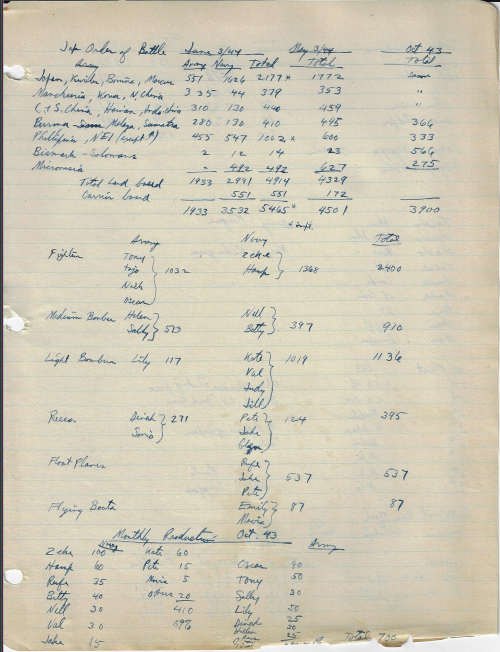 Jap Order of Battle June 3/44 May 3/44 Oct 43
Army Navy Total Total Total
Japan, Kuriles, Bonins, Marcus 551 1626 2177* 1772
Manchuria, Korea, N. China 335 44 379 353 "
C & S. China, Hainan, Indo china 310 130 440 459 "
Burma Malaya, Sumatra 280 130 410 495 366
Phillipines, NEI (except ") 455 547 1002* 600 333
Bismark - Solomons 2 12 14 23 566
Micronesia - 492 492 627 275
Total Land based 1933 2981 4914 4329
Carrier based 551 551 172
1933 3532 5465* 4501 3900
Army Navy Total
Fighter Tony Zeke
Tojo } 1032 Hamp } 1368 2400
Nick
Oscar
Medium Bomber Helen Nell
Sally } 513 Betty } 397 910
Light Bombers Lily 117 Kate } 1019 1136
Val
Judy
Jill
Recco Dinah } 271 Pete } 124 395
Sonia Jake
Glen
Float Planes Rufe
Jake } 537 537
Pete
Flying Boats Emily } 87 87
Mavis
Monthly Production Oct. 43
Navy Army
Zeke 100 Kate 60
Hamp 60 Pete 15 Oscar 80
Rufe 35 Mavis 5 Tony 50
Betty 40 Others 20 Sally 30
Nell 30 410 Lily 50
Val 30 Dinah 25
Helen 30
Jake 15 25
Total 700